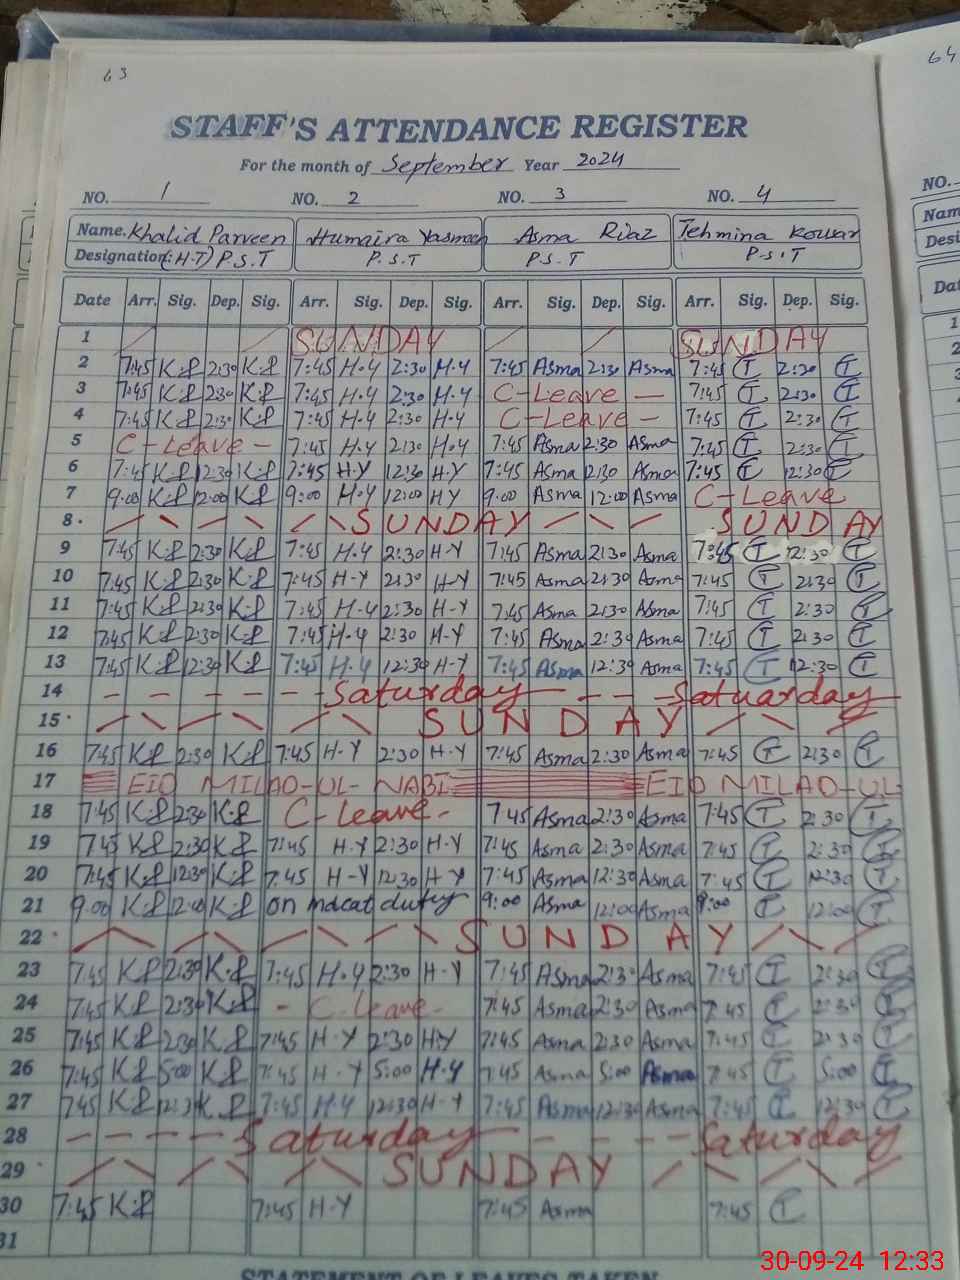 63
64
STAFF'S ATTENDANCE REGISTER
For the month of September Year 2024
NO. 1 NO. 2 NO. 3 NO. 4 NO.
Name. Khalid Parveen Humaira Yasmeen Asma Riaz Tehmina Kousar
Designation (H.T) P.S.T P.S.T P.S.T P.S.T
Date Arr. Sig. Dep. Sig. Arr. Sig. Dep. Sig. Arr. Sig. Dep. Sig. Arr. Sig. Dep. Sig.
1 SUNDAY SUNDAY
2 7:45 K.P 2:30 K.P 7:45 H.Y 2:30 H.Y 7:45 Asma 2:30 Asma 7:45 T 2:30 T
3 7:45 K.P 2:30 K.P 7:45 H.Y 2:30 H.Y C-Leave - 7:45 T 2:30 T
4 7:45 K.P 2:30 K.P 7:45 H.Y 2:30 H.Y C-Leave - 7:45 T 2:30 T
5 C-Leave - 7:45 H.Y 2:30 H.Y 7:45 Asma 2:30 Asma 7:45 T 2:30 T
6 7:45 K.P 12:30 K.P 7:45 H.Y 12:30 H.Y 7:45 Asma 12:30 Asma 7:45 T 12:30 T
7 9:00 K.P 12:00 K.P 9:00 H.Y 12:00 HY 9:00 Asma 12:00 Asma C-Leave
8 SUNDAY SUNDAY
9 7:45 K.P 2:30 K.P 7:45 H.Y 2:30 H-Y 7:45 Asma 2:30 Asma 7:45 T 2:30 T
10 7:45 K.P 2:30 K.P 7:45 H-Y 2:30 H-Y 7:45 Asma 2:30 Asma 7:45 T 2:30 T
11 7:45 K.P 2:30 K.P 7:45 H-Y 2:30 H-Y 7:45 Asma 2:30 Asma 7:45 T 2:30 T
12 7:45 K.P 2:30 K.P 7:45 H-Y 2:30 H-Y 7:45 Asma 2:30 Asma 7:45 T 2:30 T
13 7:45 K.P 12:30 K.P 7:45 H.Y 12:30 H-Y 7:45 Asma 12:30 Asma 7:45 T 12:30 T
14 Saturday Satuarday
15 SUNDAY
16 7:45 K.P 2:30 K.P 7:45 H-Y 2:30 H-Y 7:45 Asma 2:30 Asma 7:45 T 2:30 T
17 EID MILAD-UL-NABI EID MILAD-UL
18 7:45 K.P 2:30 K.P C-Leave- 7:45 Asma 2:30 Asma 7:45 T 2:30 T
19 7:45 K.P 2:30 K.P 7:45 H-Y 2:30 H-Y 7:45 Asma 2:30 Asma 7:45 T 2:30 T
20 7:45 K.P 12:30 K.P 7:45 H-Y 12:30 H-Y 7:45 Asma 12:30 Asma 7:45 T 12:30 T
21 9:00 K.P 12:00 K.P on mdcat dutey 9:00 Asma 12:00 Asma 9:00 T 12:00 T
22 SUNDAY
23 7:45 K.P 2:30 K.P 7:45 H.Y 2:30 H-Y 7:45 Asma 2:30 Asma 7:45 T 2:30 T
24 7:45 K.P 2:30 K.P - C.Leave- 7:45 Asma 2:30 Asma 7:45 T 2:30 T
25 7:45 K.P 2:30 K.P 7:45 H-Y 2:30 H.Y 7:45 Asma 2:30 Asma 7:45 T 2:30 T
26 7:45 K.P 5:00 K.P 7:45 H-Y 5:00 H.Y 7:45 Asma 5:00 Asma 7:45 T 5:00 T
27 7:45 K.P 12:30 K.P 7:45 H.Y 12:30 H-Y 7:45 Asma 12:30 Asma 7:45 T 12:30 T
28 Saturday Saturday
29 SUNDAY
30 7:45 K.P 7:45 H-Y 7:45 Asma 7:45 T
31
STATEMENT OF LEAVES TAKEN
30-09-24 12:33